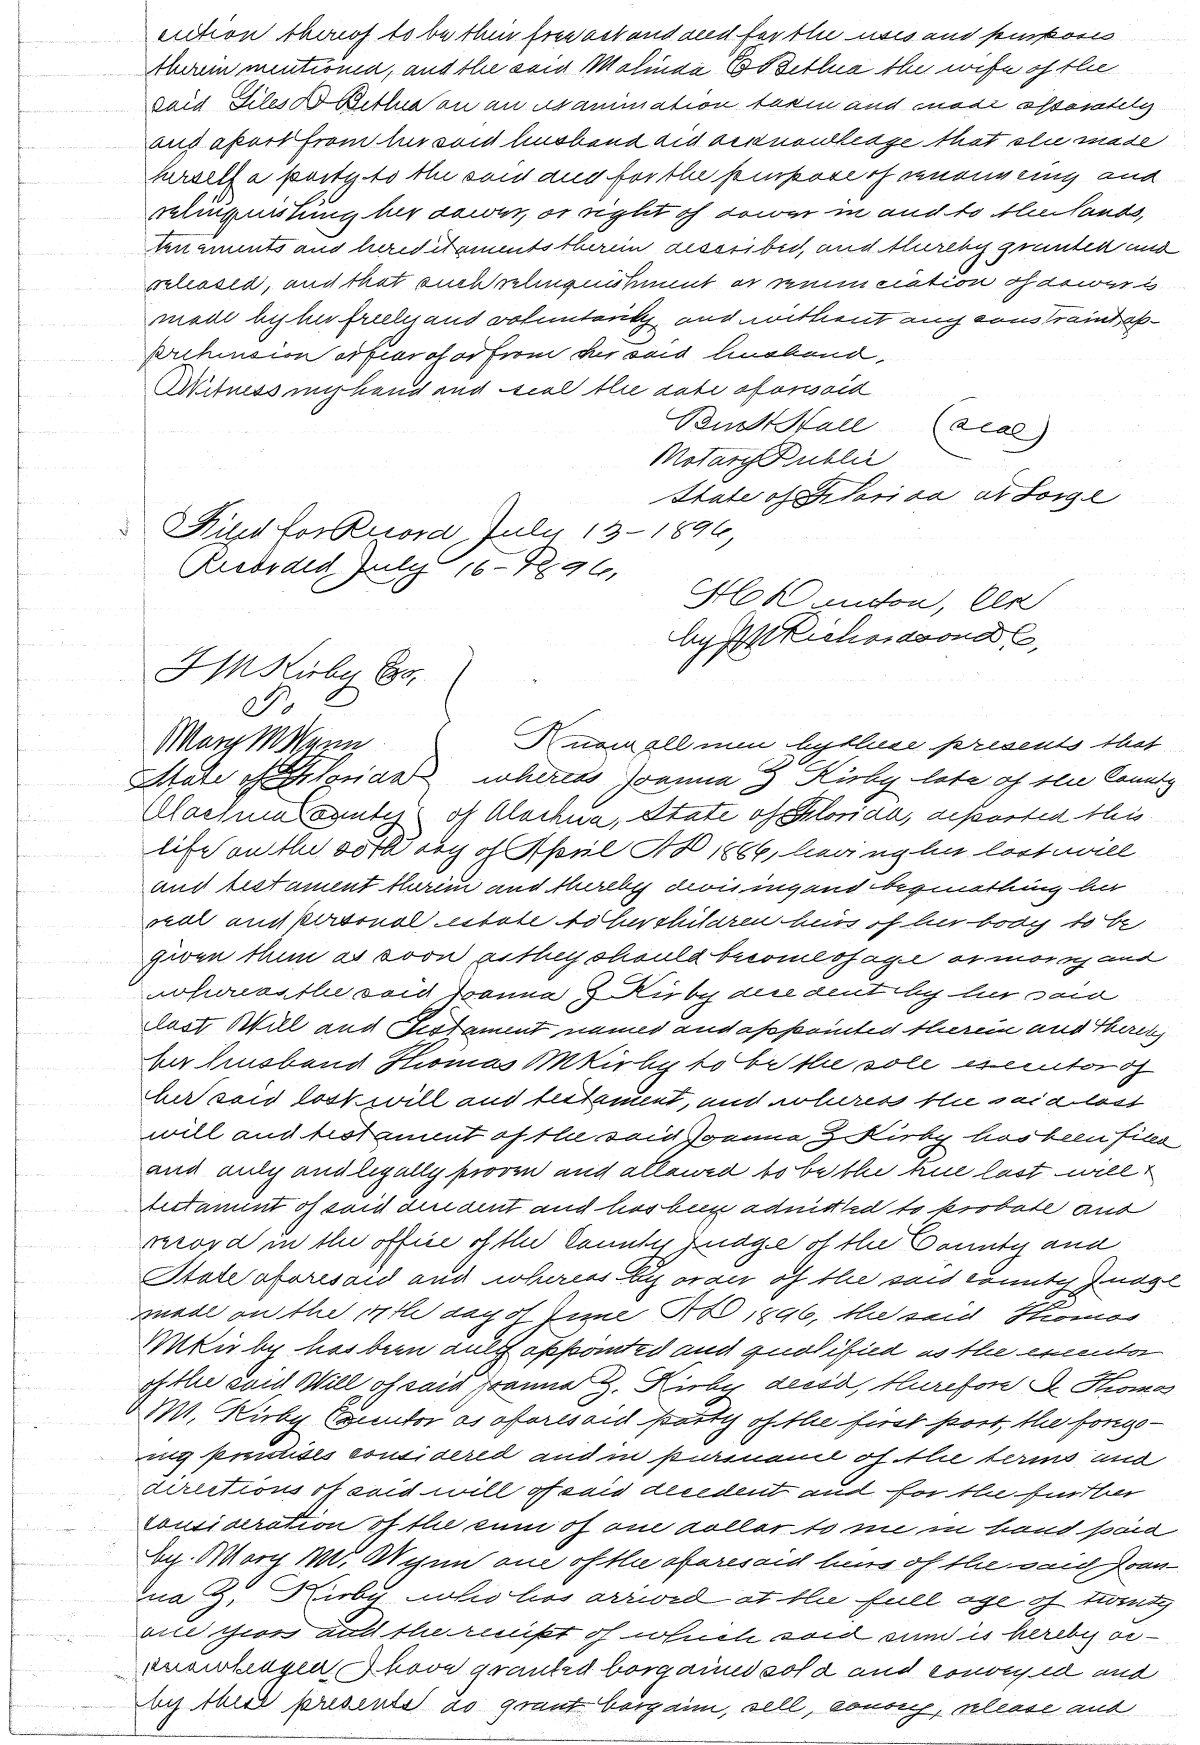 ecution thereof to be their free act and deed for the uses and purposes
therein mentioned, and the said Malinda E Bethea the wife of the
said Giles D Bethea on an examination taken and made separately
and apart from her said husband did acknowledge that she made
herself a party to the said deed for the purpose of renouncing and
relinquishing her dower, or right of dower in and to the lands,
tenements and hereditaments therein described, and thereby granted and
released, and that such relinquishment or renunciation of dower is
made by her freely and voluntarily and without any constraint, ap-
prehension or fear of or from her said husband.
Witness my hand and seal the date aforesaid
Hall (seal)
Notary Public
State of Florida at Large
Filed for Record July 13-1896,
Recorded July 16-1896,
H C Denton, Clk
by Richardson D.C,
T M Kirby Exr,
To
Mary M Wynn Know all men by these presents that
State of Florida whereas Joanna Z Kirby late of the County
Alachua County of Alachua, State of Florida, departed this
life on the 30th day of April AD 1886, having her last will
and testament therein and thereby devising and bequeathing her
real and personal estate to her children heirs of her body to be
given them as soon as they should become of age or marry and
whereas the said Joanna Z Kirby decedent by her said
last Will and Testament named and appointed therein and thereby
her husband Thomas M Kirby to be the sole executor of
her said last will and testament, and whereas the said last
will and testament of the said Joanna Z Kirby has been filed
and duly and legally proven and allowed to be the true last will &
testament of said decedent and has been admitted to probate and
record in the office of the County Judge of the County and
State aforesaid and whereas by order of the said county Judge
made on the 17th day of June AD 1896, the said Thomas
M Kirby has been duly appointed and qualified as the executor
of the said Will of said Joanna Z. Kirby decsd, therefore I Thomas
M. Kirby Executor as aforesaid party of the first part, the forego-
ing premises considered and in pursuance of the terms and
directions of said will of said decedent and for the further
consideration of the sum of one dollar to me in hand paid
by Mary M. Wynn one of the aforesaid heirs of the said Joan
na Z. Kirby who has arrived at the full age of twenty
one years and the receipt of which said sum is hereby ac-
knowledged I have granted bargained sold and conveyed and
by these presents do grant bargain, sell, convey, release and